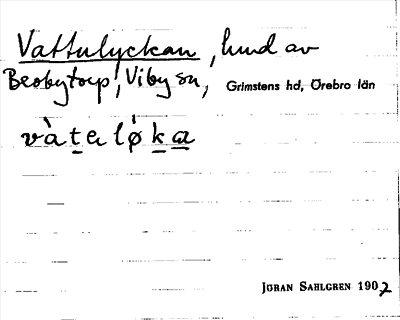 Vattulyckan, hund av
Brobytorp, Viby sn, Grimstens hd, Örebro län
vàtəløka
JÖRAN SAHLGREN 1902